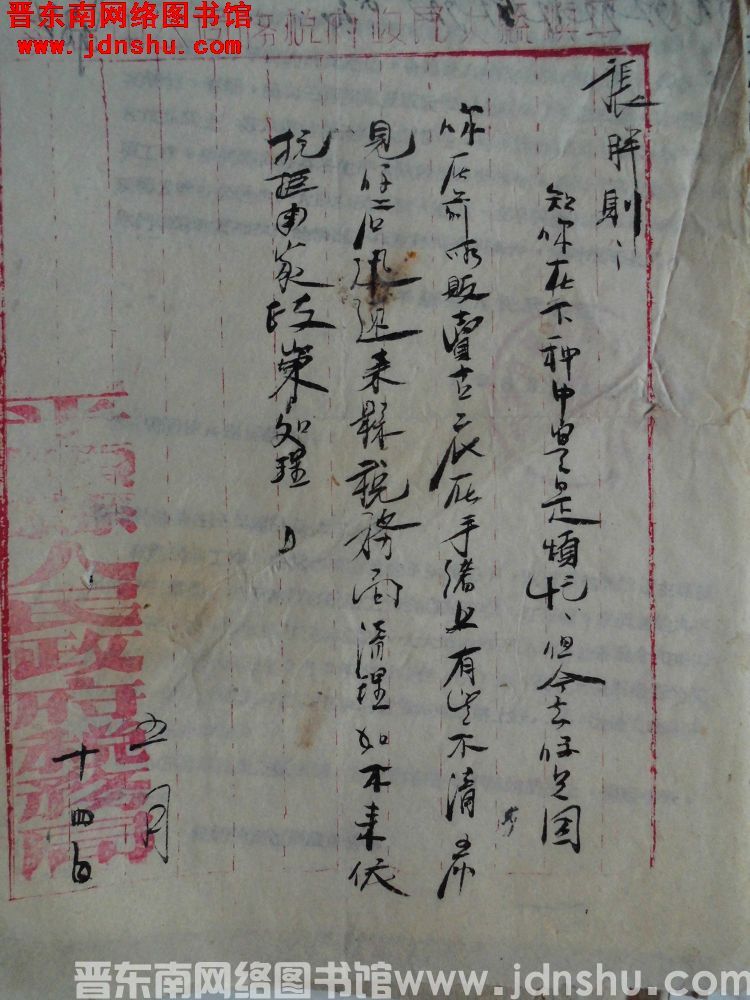 晋东南网络图书馆
www.jdnshu.com
張胖則：
知你在下种中豊是煩忙、但今去信是因
你在前所販賣古衣在手續上有些不清 希
見信后迅速来縣税務局清理如不来依
抗拒国家政策処理
五月
十四日
县人民政府税務局
晋东南网络图书馆www.jdnshu.com